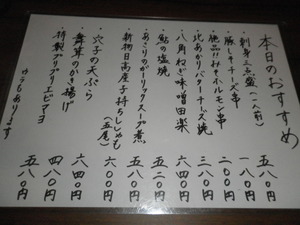 本日のおすすめ
・刺身三点盛(一人前) 五八〇円
・豚しそチーズ串 一八〇円
・絶品!!みそホルモン串 二〇〇円
・北あかりバターチーズ焼 三八〇円
・八角ねぎ味噌田楽 六四〇円
・鮎の塩焼 五二〇円
・あさりのガーリックスープ煮 五八〇円
・新物日高産子持ちししゃも(五尾) 六〇〇円
・穴子の天ぷら 六四〇円
・舞茸のかき揚げ 四八〇円
・特製プリプリエビマヨ 五八〇円
ウラもあります